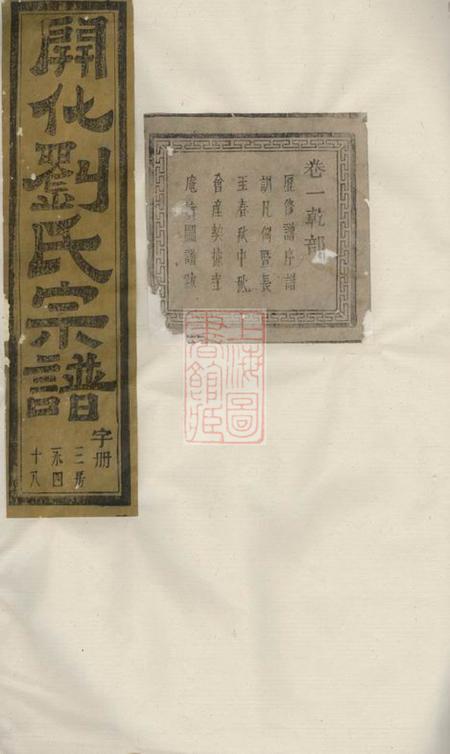 開化劉氏宗譜
字冊
三房
永四
十八
卷一乾部
歷修譜序譜
訓凡例暨長
至春秋中秋
會產契據堂
庵圖譜跋
上海圖
書館藏